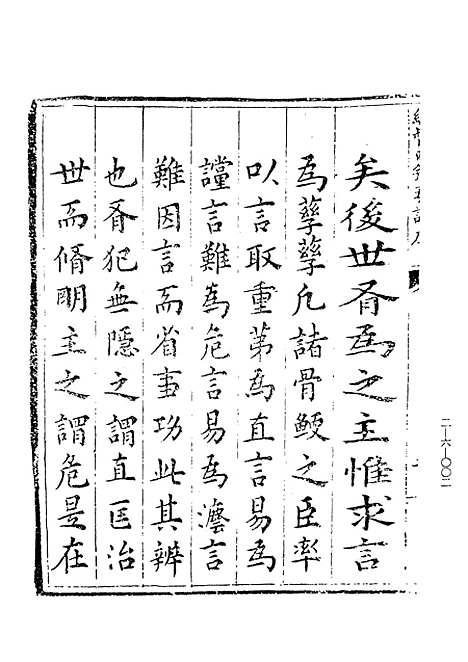 矣後世有爲之主惟求言
爲孳孳凡諸骨鯁之臣率
以言取重第爲直言易爲
讜言難爲危言易爲讜言
難因言而省事功此其辨
也有犯無隱之謂直匡治
世而脩明主之謂危是在
二-六-〇〇二